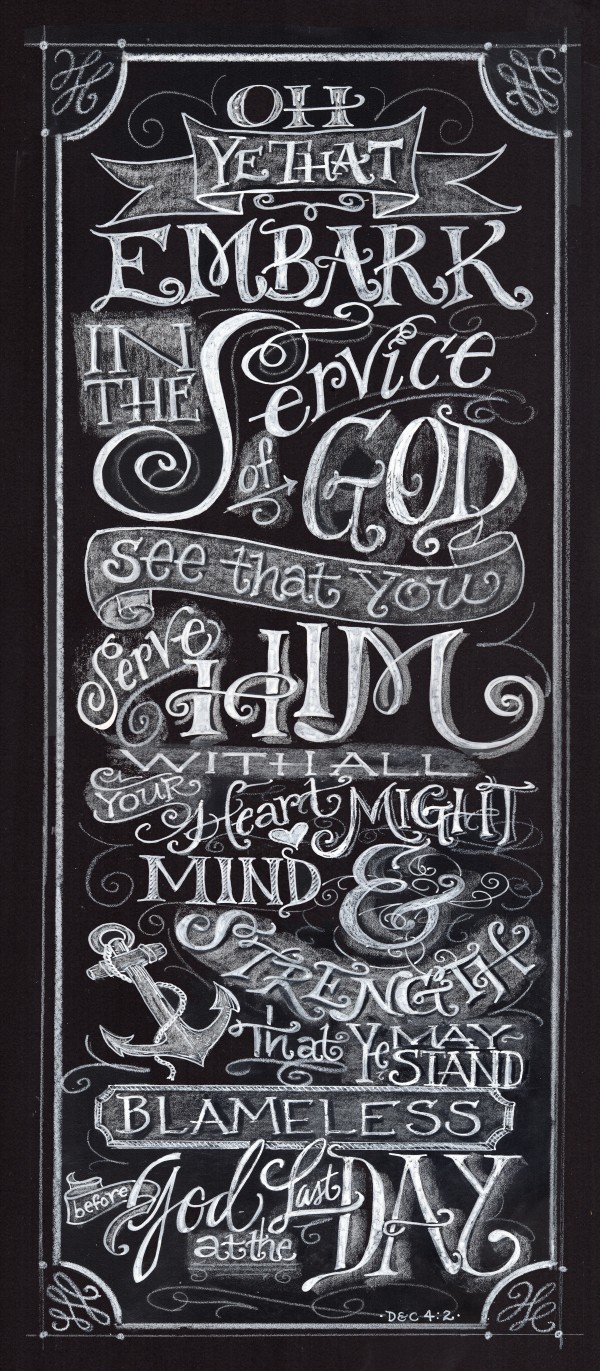 OH
YE THAT
EMBARK
IN THE Service
of GOD
see that you
Serve HIM
WITH ALL
YOUR Heart MIGHT
MIND &
STRENGTH
That Ye MAY STAND
BLAMELESS
before God at the Last DAY
· D&C 4:2 ·